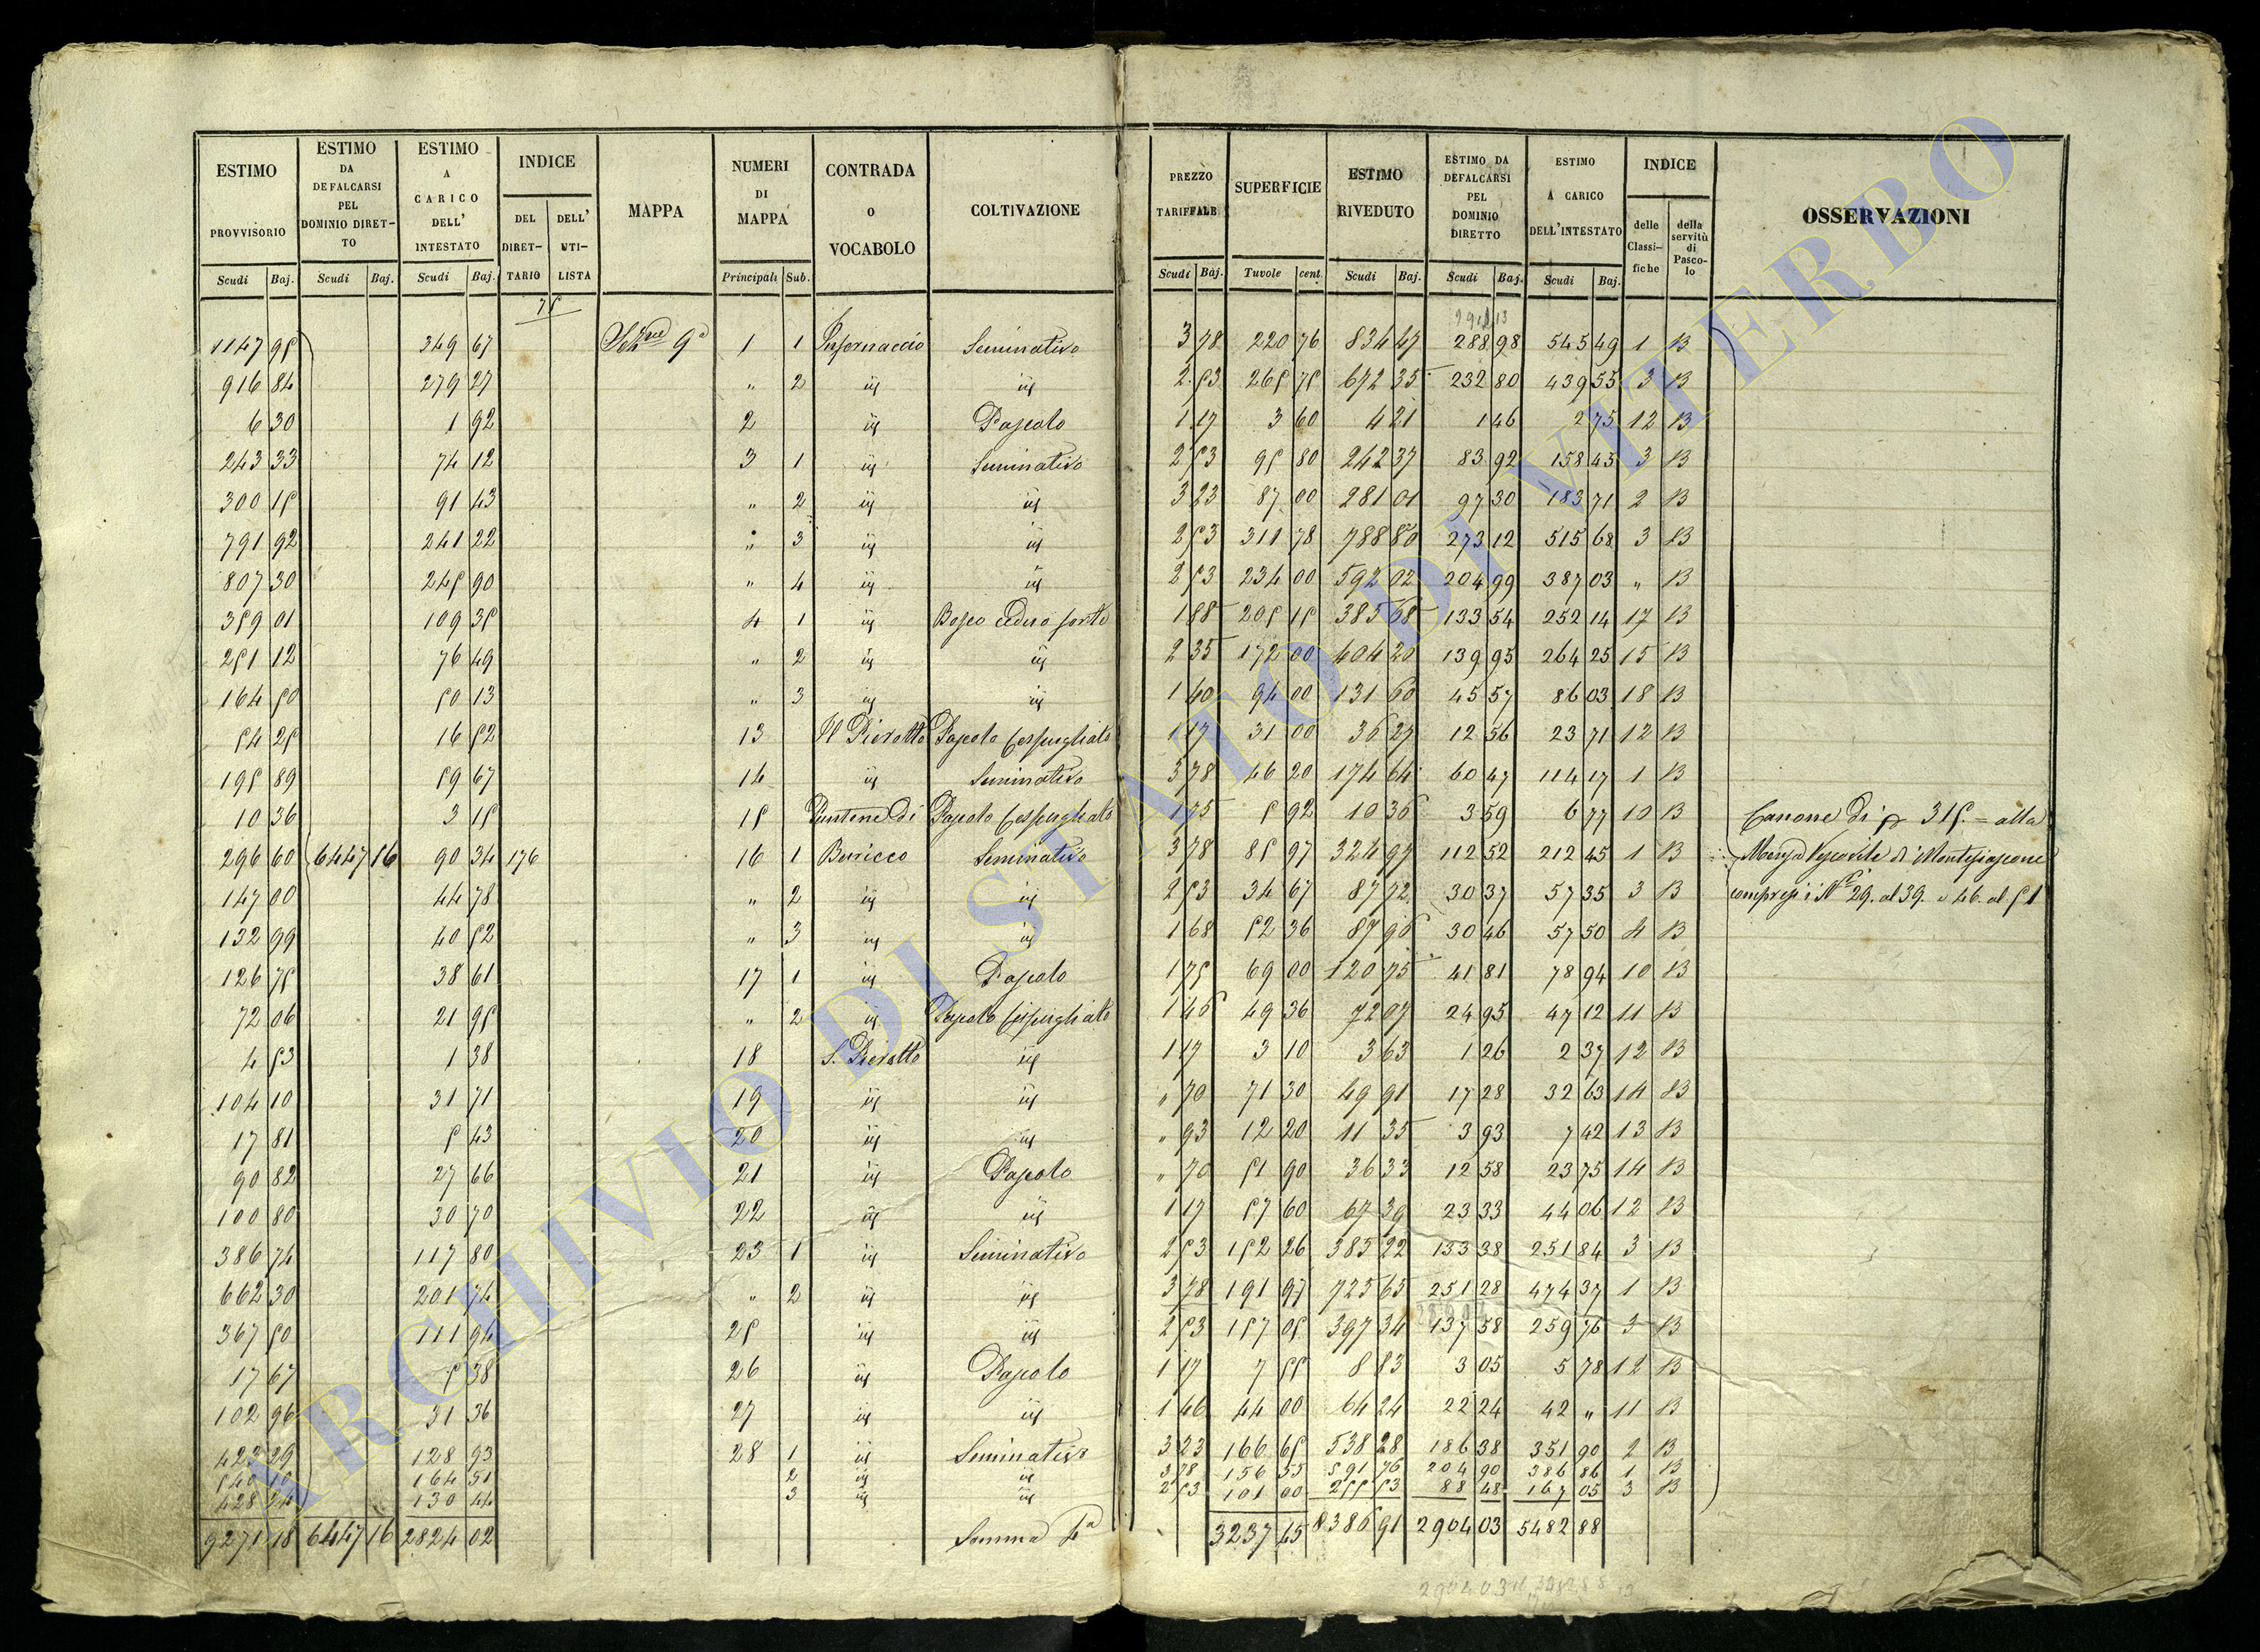 ESTIMO PROVVISORIO | ESTIMO DA DEFALCARSI PEL DOMINIO DIRETTO | ESTIMO A CARICO DELL' INTESTATO | INDICE DEL DIRETTARIO | DELL' UTILISTA | MAPPA | NUMERI DI MAPPA | CONTRADA O VOCABOLO | COLTIVAZIONE | PREZZO TARIFFALE | SUPERFICIE | ESTIMO RIVEDUTO | ESTIMO DA DEFALCARSI PEL DOMINIO DIRETTO | ESTIMO A CARICO DELL'INTESTATO | INDICE delle Classifiche | della servitù di Pascolo | OSSERVAZIONI
Scudi Baj. | Scudi Baj. | Scudi Baj. | Principali Sub. | Scudi Baj. | Tavole cent. | Scudi Baj. | Scudi Baj. | Scudi Baj.
75
1147 95 | 349 67 | 9a | 1 | 1 | Infernaccio | Seminativo | 3 78 | 220 76 | 834 47 | 288 98 | 545 49 | 1 | B
916 84 | 279 27 | " | 2 | id | id | 2 53 | 265 75 | 672 35 | 232 80 | 439 55 | 3 | B
6 30 | 1 92 | 2 | id | Pascolo | 1 17 | 3 60 | 4 21 | 1 46 | 2 75 | 12 | B
243 33 | 74 12 | 3 | 1 | id | Seminativo | 2 53 | 95 80 | 242 37 | 83 92 | 158 45 | 3 | B
300 15 | 91 43 | " | 2 | id | id | 3 23 | 87 00 | 281 01 | 97 30 | 183 71 | 2 | B
791 92 | 241 22 | " | 3 | id | id | 2 53 | 311 78 | 788 80 | 273 12 | 515 68 | 3 | B
807 30 | 245 90 | " | 4 | id | id | 2 53 | 234 00 | 592 02 | 204 99 | 387 03 | " | B
359 01 | 109 35 | 4 | 1 | id | Bosco ceduo forte | 1 88 | 205 15 | 385 68 | 133 54 | 252 14 | 17 | B
251 12 | 76 49 | " | 2 | id | id | 2 35 | 172 00 | 404 20 | 139 95 | 264 25 | 15 | B
164 50 | 50 13 | " | 3 | id | id | 1 40 | 94 00 | 131 60 | 45 57 | 86 03 | 18 | B
54 25 | 16 52 | 13 | Il Pierotto | Pascolo Cespugliato | 1 17 | 31 00 | 36 27 | 12 56 | 23 71 | 12 | B
195 89 | 59 67 | 14 | id | Seminativo | 3 78 | 46 20 | 174 64 | 60 47 | 114 17 | 1 | B
10 36 | 3 15 | 15 | Puntone di | Pascolo Cespugliato | 1 75 | 5 92 | 10 36 | 3 59 | 6 77 | 10 | B | Canone di 315.= alla
296 60 | 6447 16 | 90 34 | 176 | 16 | 1 | Buricco | Seminativo | 3 78 | 85 97 | 324 97 | 112 52 | 212 45 | 1 | B | Mensa Vescovile di Montefiascone
147 00 | 44 78 | " | 2 | id | id | 2 53 | 34 67 | 87 72 | 30 37 | 57 35 | 3 | B | compresi i Ni 29. al 39. e 46. al 51
132 99 | 40 52 | " | 3 | id | id | 1 68 | 52 36 | 87 96 | 30 46 | 57 50 | 4 | B
126 75 | 38 61 | 17 | 1 | id | Pascolo | 1 75 | 69 00 | 120 75 | 41 81 | 78 94 | 10 | B
72 06 | 21 95 | " | 2 | id | Pascolo Cespugliato | 1 46 | 49 36 | 72 07 | 24 95 | 47 12 | 11 | B
4 53 | 1 38 | 18 | Il Pierotto | id | 1 17 | 3 10 | 3 63 | 1 26 | 2 37 | 12 | B
104 10 | 31 71 | 19 | id | id | " 70 | 71 30 | 49 91 | 17 28 | 32 63 | 14 | B
17 81 | 5 43 | 20 | id | id | " 93 | 12 20 | 11 35 | 3 93 | 7 42 | 13 | B
90 82 | 27 66 | 21 | id | Pascolo | " 70 | 51 90 | 36 33 | 12 58 | 23 75 | 14 | B
100 80 | 30 70 | 22 | id | id | 1 17 | 57 60 | 67 39 | 23 33 | 44 06 | 12 | B
386 74 | 117 80 | 23 | 1 | id | Seminativo | 2 53 | 152 26 | 385 22 | 133 38 | 251 84 | 3 | B
662 30 | 201 74 | " | 2 | id | id | 3 78 | 191 97 | 725 65 | 251 28 | 474 37 | 1 | B
367 50 | 111 94 | 25 | id | id | 2 53 | 157 05 | 397 34 | 137 58 | 259 76 | 3 | B
17 67 | 5 38 | 26 | id | Pascolo | 1 17 | 7 55 | 8 83 | 3 05 | 5 78 | 12 | B
102 96 | 31 36 | 27 | id | id | 1 46 | 44 00 | 64 24 | 22 24 | 42 " | 11 | B
423 29 | 128 93 | 28 | 1 | id | Seminativo | 3 23 | 166 65 | 538 28 | 186 38 | 351 90 | 2 | B
540 10 | 164 51 | 2 | id | id | 3 78 | 156 55 | 591 76 | 204 90 | 386 86 | 1 | B
428 24 | 130 44 | 3 | id | id | 2 53 | 101 00 | 255 53 | 88 48 | 167 05 | 3 | B
9271 18 | 6447 16 | 2824 02 | Somma | 3237 45 | 8386 91 | 2904 03 | 5482 88
ARCHIVIO DI STATO DI VITERBO